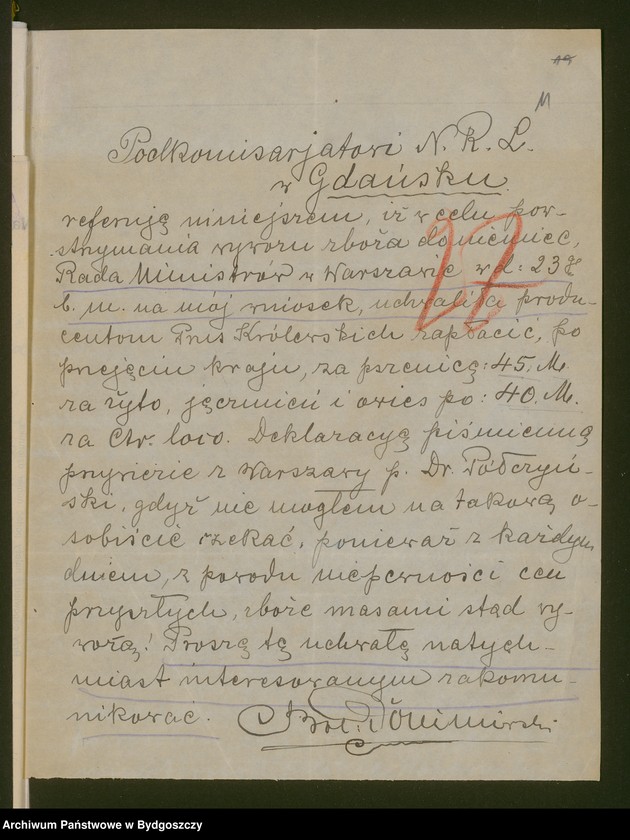 11
Podkomisarjatowi N. R. L.
w Gdańsku.
referuję niniejszem, iż w celu pow-
strzymania wywozu zboża do niemiec,
Rada Ministrów w Warszawie wd: 23
b. m. na mój wniosek, uchwaliła produ-
centom Prus Królewskich zapłacić, po
przejęciu kraju, za pszenicę: 45. M.
za żyto, jęczmień i owies po: 40. M.
za Ctr. loco. Deklaracyę piśmienną
przywiezie z Warszawy p. Dr. Połczyń-
ski, gdyż nie mogłem na takową o-
sobiście czekać, ponieważ z każdym
dniem, z powodu niepewności cen
przyszłych, zboże masami stąd wy-
wożą! Proszę tę uchwałę natych-
miast interesowanym zakomu-
nikować.
Donimirski
Archiwum Państwowe w Bydgoszczy